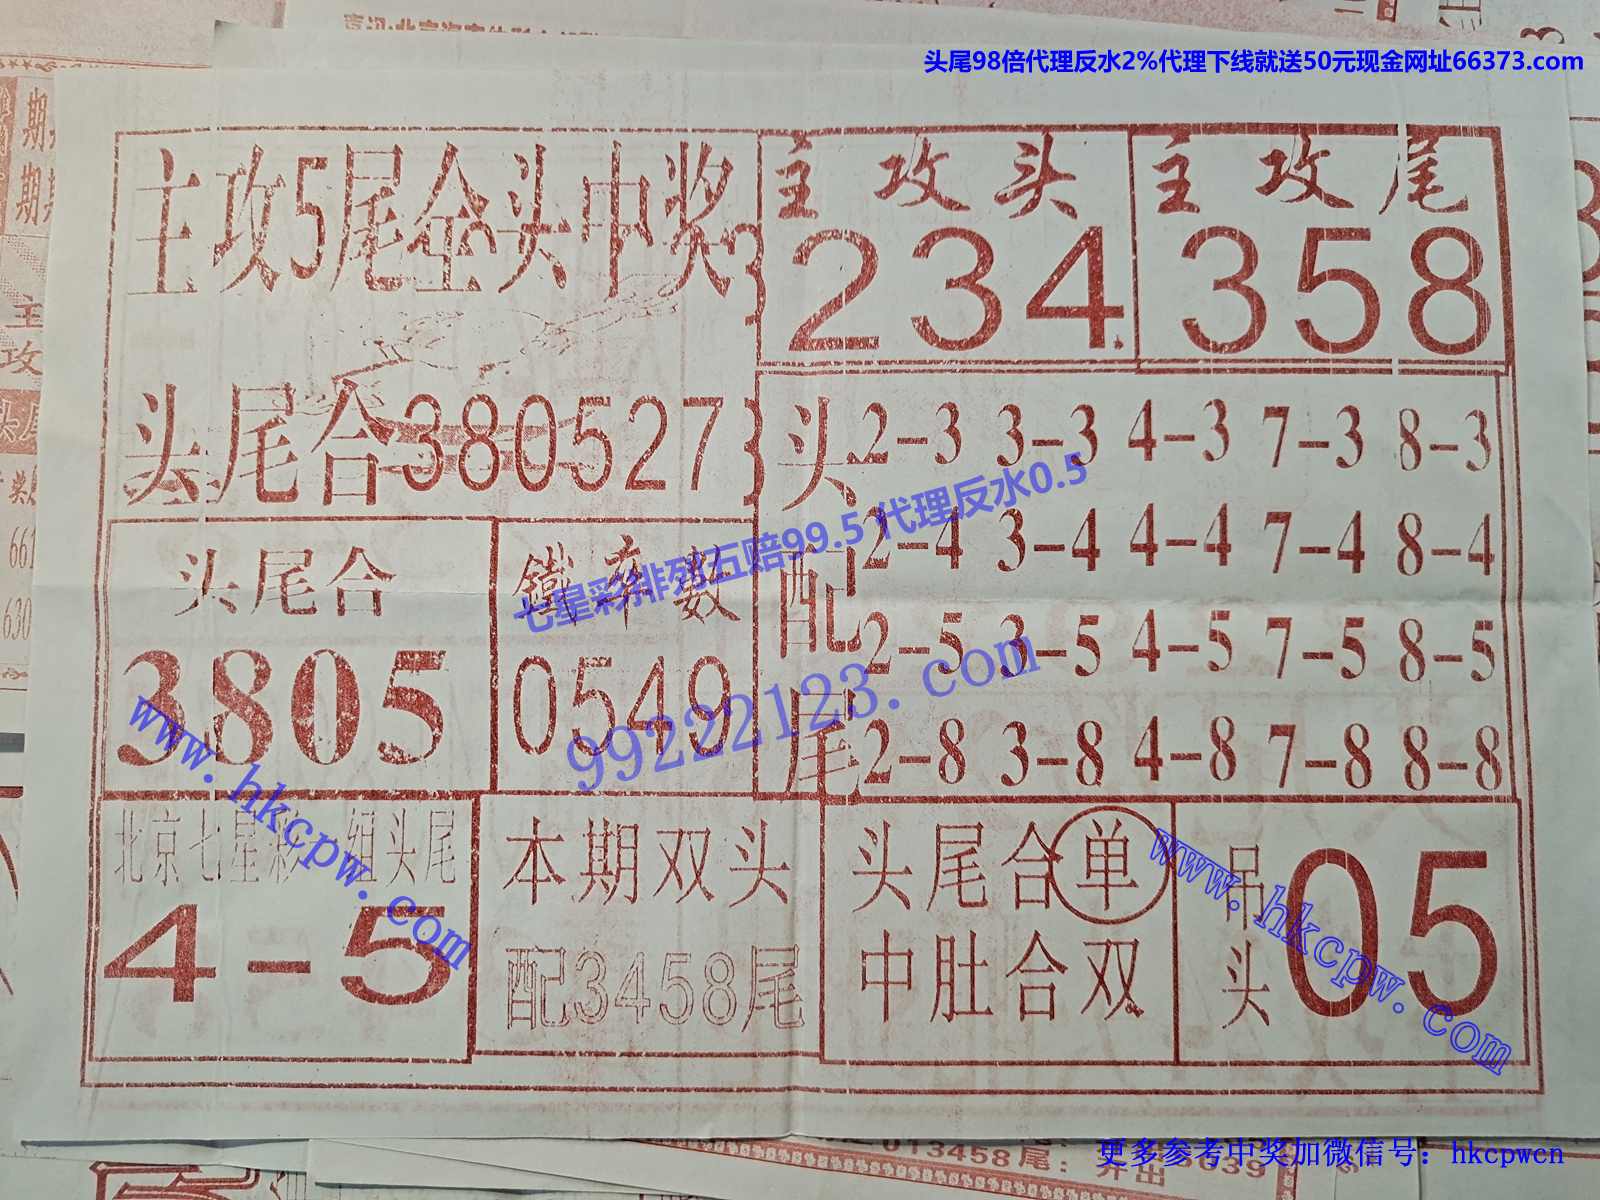 喜讯:北京
头尾98倍代理反水2%代理下线就送50元现金网址66373.com
主攻5尾全头中奖
主攻头
234
主攻尾
358
头尾合380527
头配尾
2-3 3-3 4-3 7-3 8-3
2-4 3-4 4-4 7-4 8-4
2-5 3-5 4-5 7-5 8-5
2-8 3-8 4-8 7-8 8-8
头尾合
3805
鐵率數
0549
七星彩排列五赔99.5 代理反水0.5
99222123.com
www.hkcpw.com
北京七星彩一组头尾
4-5
本期双头
配3458尾
头尾合单
中肚合双
吊头05
www.hkcpw.com
期
期
主
攻
头尾
661
630
013458尾:
更多参考中奖加微信号: hkcpwcn